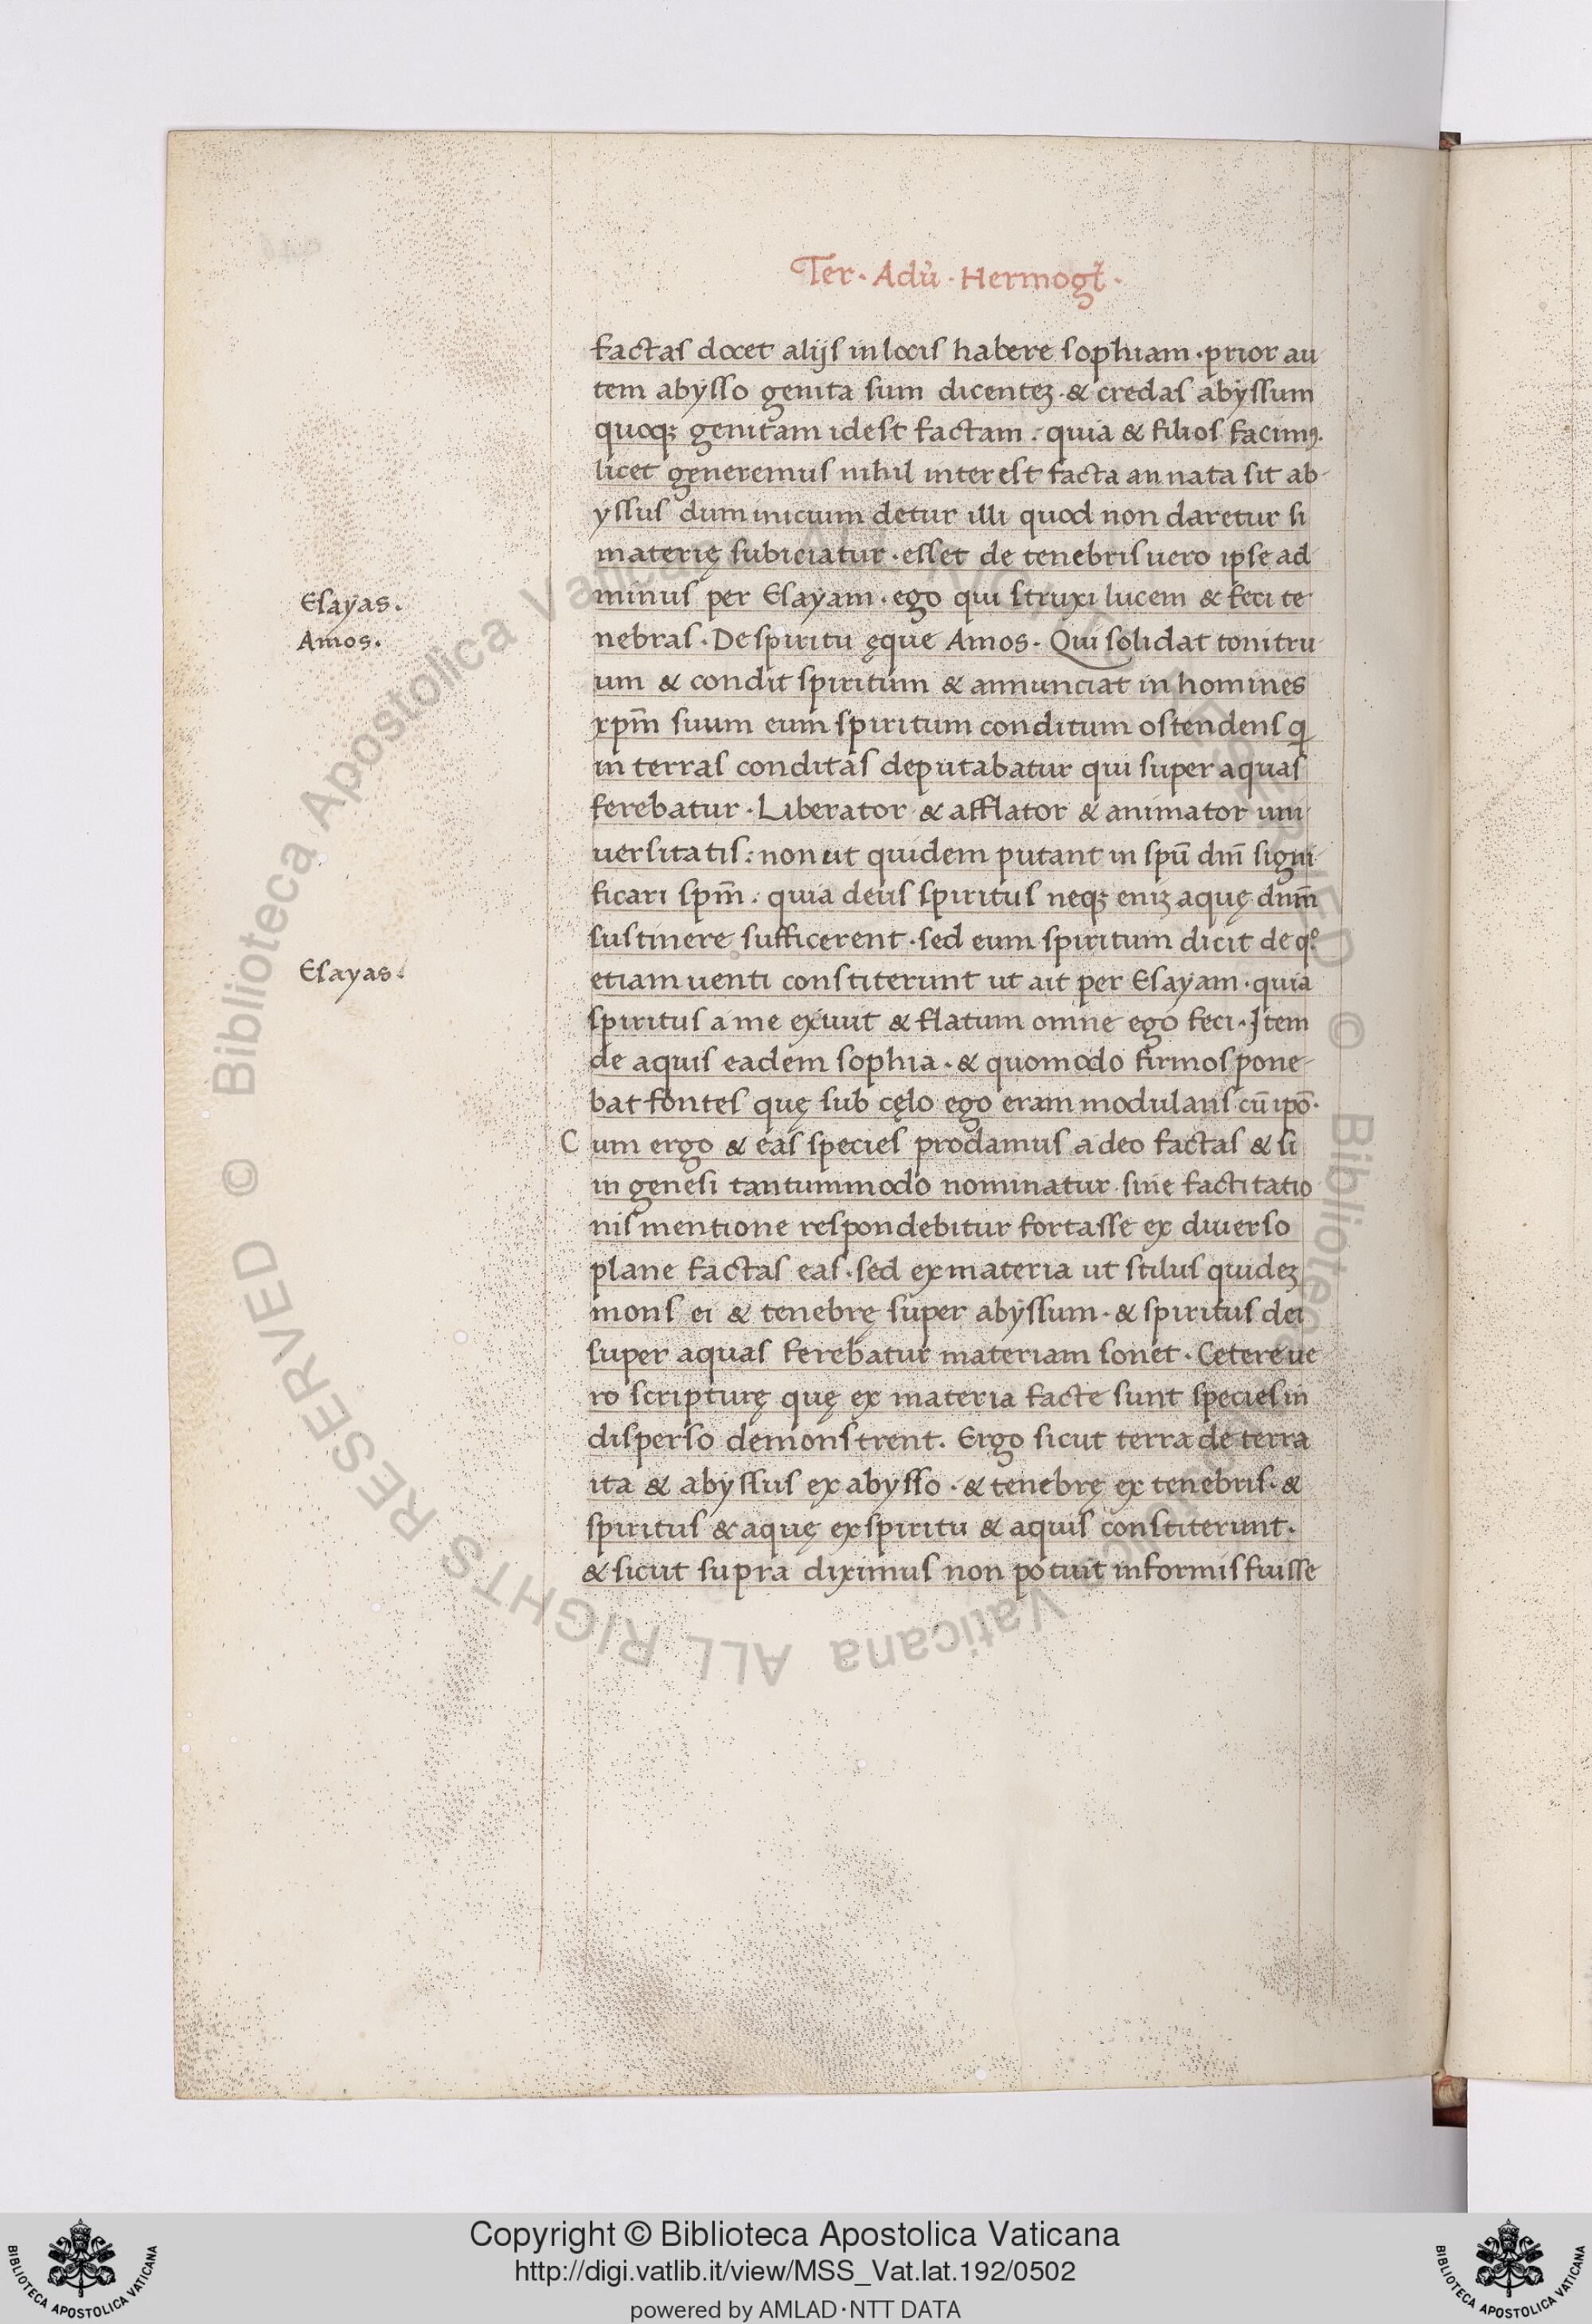 Ter. Adu̓. Hermogē.
factas docet alijs in locis habere sophiam. prior au
tem abysso genita sum dicentez. & credas abyssum
quoqȝ genitam idest factam. quia & filios facimꝰ.
licet generemus nihil interest facta an nata sit ab
yssus dum inicium detur illi quod non daretur si
materię subiciatur. esset de tenebris uero ipse ad
Esayas.
minus per Esayam. ego qui struxi lucem & feci te
Amos.
nebras. De spiritu ęque Amos. Qui solidat tonitru
um & condit spiritum & annunciat in homines
xpm̄ suum eum spiritum conditum ostendens q
in terras conditas deputabatur qui super aquas
ferebatur. Liberator & afflator & animator uni
uersitatis: non ut quidem putant in spū dm̄ signi
ficari spm̄. quia deus spiritus neqȝ eniȝ aquę dnm̄
sustinere sufficerent. sed eum spiritum dicit de qº
Esayas.
etiam uenti constiterunt ut ait per Esayam. quia
spiritus a me exiuit & flatum omne ego feci. Item
de aquis eadem sophia. & quomodo firmos pone
bat fontes quę sub cęlo ego eram modulans cū ipō.
Cum ergo & eas species prodamus a deo factas & si
in genesi tantummodo nominatur sine factitatio
nis mentione respondebitur fortasse ex diuerso
plane factas eas. sed ex materia ut stilus quidez
mons ei & tenebrę super abyssum. & spiritus dei
super aquas ferebatur materiam sonet. Cetere ue
ro scripturę quę ex materia facte sunt species in
disperso demonstrent. Ergo sicut terra de terra
ita & abyssus ex abysso. & tenebrę ex tenebris. &
spiritus & aquę ex spiritu & aquis constiterunt.
& sicut supra diximus non potuit informis fuisse
© Biblioteca Apostolica Vaticana ALL RIGHTS RESERVED © Biblioteca Apostolica Vaticana ALL RIGHTS RESERVED
Copyright © Biblioteca Apostolica Vaticana
http://digi.vatlib.it/view/MSS_Vat.lat.192/0502
powered by AMLAD·NTT DATA
BIBLIOTECA APOSTOLICA VATICANA
BIBLIOTECA APOSTOLICA VATICANA